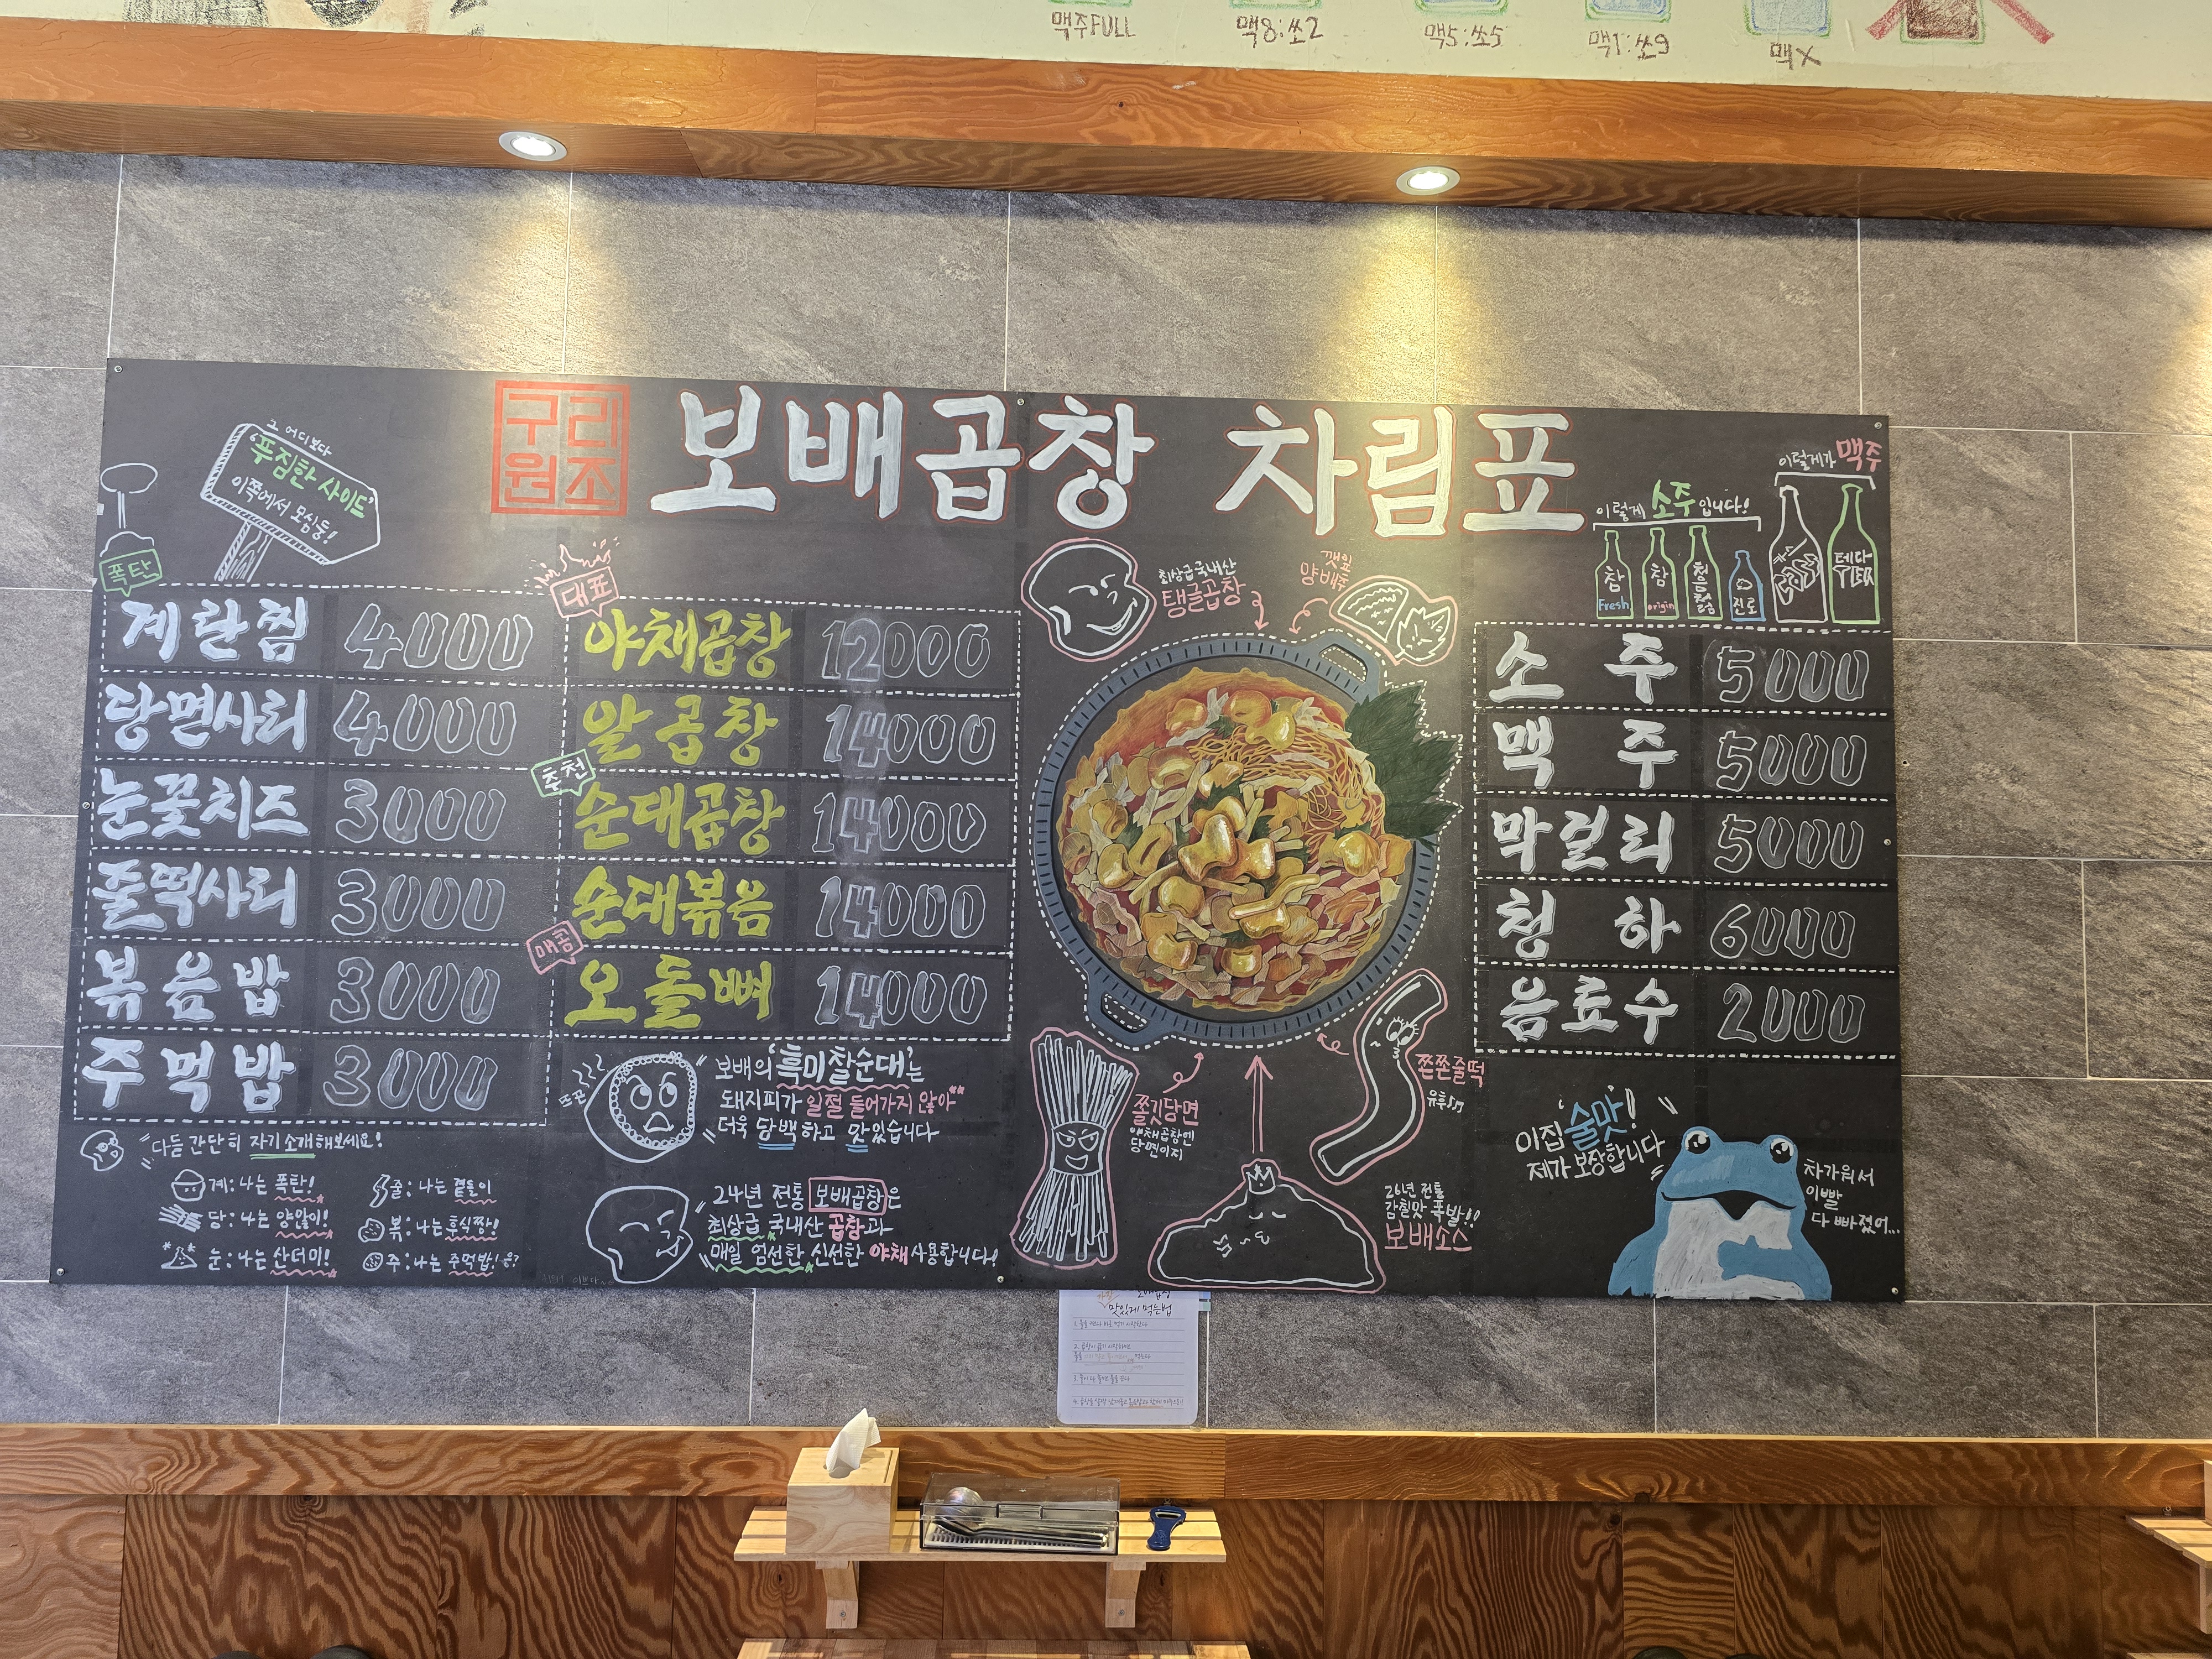 맥주FULL
맥8:쏘2
맥5:쏘5
맥1:쏘9
맥X
구리
원조
보배곱창 차림표
그 어디보다
'푸짐한 사이드'
이쪽에서 모심둥!
폭탄
계란찜 4000
당면사리 4000
눈꽃치즈 3000
줄떡사리 3000
볶음밥 3000
주먹밥 3000
대표
야채곱창 12000
알곱창 14000
추천
순대곱창 14000
순대볶음 14000
매콤
오돌뼈 14000
최상급 국내산
탱글곱창
깻잎
양배추
쫄깃당면
야채곱창엔
당면이지
쫀쫀줄떡
유후
26년 전통
감칠맛 폭발!!
보배소스
이렇게 소주 입니다!
이렇게가 맥주
참
Fresh
참
origin
처음처럼
진로
테라
소주 5000
맥주 5000
막걸리 5000
청하 6000
음료수 2000
"다들 간단히 자기소개해보세요!
계:나는 폭탄!
당:나는 양많이!
눈:나는 산더미!
줄:나는 곁들이
볶:나는 후식짱!
주:나는 주먹밥! 응?
뜨끈
"보배의 '흑미찰순대'는
돼지피가 일절 들어가지 않아"
더욱 담백하고 맛있습니다
24년 전통 보배곱창은
최상급 국내산 곱창과
매일 엄선한 신선한 야채 사용합니다!
이집 '술맛'!
제가 보장합니다
차가워서
이빨
다 빠졌어...
보배곱창
맛있게 먹는법